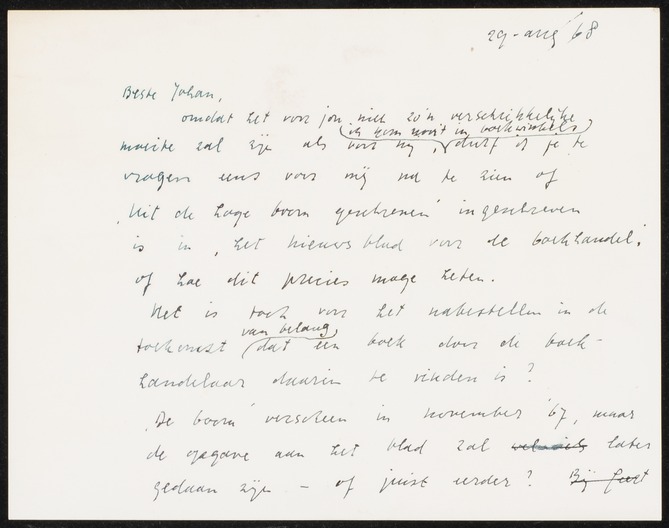 29-aug '68
Beste Johan,
omdat het voor jou niet zo'n verschrikkelijke
(ik kom nooit in boekwinkels)
moeite zal zijn als voor mij, durf ik je te
vragen eens voor mij na te zien of
'Uit de hoge boom geschreven' ingeschreven
is in 'het nieuwsblad voor de boekhandel'
of hoe dit precies moge heten.
Het is toch voor het nabestellen in de
van belang
toekomst dat een boek door de boek-
handelaar daarin te vinden is?
'De boom' verscheen in november '67, maar
de opgave aan het blad zal later
gedaan zijn – of juist eerder? Bij